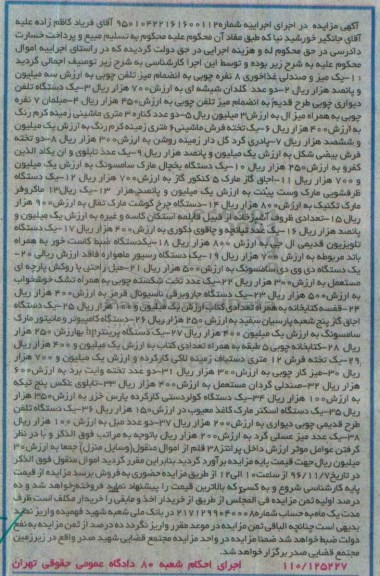 آگهی مزایده در اجرای اجراییه شماره ۹۵۰۱۰۴۲۲۱۶۱۶۰۰۱۱۲ آقای فریاد کاظم زاده علیه
آقای جانگیر خورشید نیا که طبق مفاد آن محکوم علیه محکوم به تسلیم مبیع و پرداخت خسارت
دادرسی در حق محکوم له و هزینه اجرایی در حق دولت گردیده که در راستای اجراییه اموال
محکوم علیه به شرح زیر بوده و توسط این اجرا کارشناسی به شرح زیر توصیف اجمالی گردید
۱-یک میز و صندلی غذاخوری ۸ نفره چوبی به انضمام میز تلفن چوبی به ارزش سه میلیون
و پانصد هزار ریال ۲-دو عدد گلدان شیشه ای به ارزش ۷۰۰ هزار ریال ۳-یک دستگاه تلفن
دیواری چوبی طرح قدیم به انضمام میز تلفن چوبی به ارزش ۴۵۰ هزار ریال ۴-مبلمان ۷ نفره
چوبی به همراه میز ال به ارزش ۳ میلیون ریال ۵-دو عدد کناره ۳ متری ماشینی زمینه کرم رنگ
به ارزش ۴۰۰ هزار ریال ۶-یک تخته فرش ماشینی ۶ متری زمینه کرم رنگ به ارزش یک میلیون
و ششصد هزار ریال ۷-پادری گرد گل دار زمینه روشن به ارزش ۳۰۰ هزار ریال ۸-دو تخته
فرش بیضی شکل به ارزش یک میلیون و پانصد هزار ریال ۹-یک عدد تابلوی و ان یکاد الذین
کفرو به ارزش ۲۵۰ هزار ریال ۱۰-یک دستگاه یخچال مارک سامسونگ به ارزش یک میلیون
و ۷۰۰ هزار ریال ۱۱-اجاق گاز مارک ۵ کنکور گاز به ارزش ۷۰۰ هزار ریال ۱۲-یک دستگاه
ظرفشویی مارک وست پینت به ارزش یک میلیون و پانصد هزار ریال ۱۳-یک ماکروفر
مارک تکنیک به ارزش ۸۰۰ هزار ریال ۱۴-دستگاه چرخ گوشت مارک تفال به ارزش ۹۰۰ هزار
ریال ۱۵-تعدادی ظروف آشپزخانه از قبیل قابلمه استکان کاسه و غیره به ارزش یک میلیون و
پانصد هزار ریال ۱۶-یک عدد قبالچه و چاقوی دکوری به ارزش ۴۰۰ هزار ریال ۱۷-یک دستگاه
تلویزیون قدیمی ال جی به ارزش ۸۰۰ هزار ریال ۱۸-یک دستگاه ضبط کاست خور به همراه
باند مربوطه به ارزش ۷۰۰ هزار ریال ۱۹-یک دستگاه رسیور ماهواره فاقد ارزش ریالی ۲۰-
یک دستگاه دی وی دی سامسونگ به ارزش ۵۰۰ هزار ریال ۲۱-مبل راحتی با روکش پارچه ای
مستعمل به ارزش ۳۰۰ هزار ریال ۲۲-یک عدد تخت شکسته چوبی به همراه تشک خوشخواب
به ارزش ۵۰۰ هزار ریال ۲۳-یک دستگاه جاروبرقی ناسیونال قرمز به ارزش ۴۰۰ هزار ریال
۲۴-قفسه کتابخانه به همراه تعدادی کتاب ارزش یک میلیون و ۱۰۰ هزار ریال ۲۵-یک دستگاه
اجاق گاز پنج شعبه پارسیان سفید به ارزش ۲۵۰ هزار ریال ۲۶-دستگاه کامپیوتر و مانیتور مارک
سامسونگ به ارزش یک میلیون ۴۰۰ هزار ریال ۲۷-یک دستگاه پرینتر hp به ارزش ۲۵۰ هزار
ریال ۲۸-کتابخانه چوبی ۵ طبقه به همراه تعدادی کتاب به ارزش یک میلیون و ۴۰۰ هزار ریال
۲۹-یک تخته فرش ۱۲ متری دستباف زمینه لاکی کارکرده و ارزش یک میلیون و ۷۰۰ هزار
ریال ۳۰-میز کار چوبی به ارزش ۳۰۰ هزار ریال ۳۱-دو عدد تخته وایت برد به ارزش ۶۰۰
هزار ریال ۳۲-صندلی گردان مستعمل به ارزش ۴۰۰ هزار ریال ۳۳-تابلوی عکس پنج تیکه
به ارزش ۱۰۰ هزار ریال ۳۴-یک دستگاه کولر دستی کارکرده پارس خزر به ارزش ۳۵۰ هزار
ریال ۳۵-یک دستگاه اسکنر مارک کاغذ معیوب در ارزش ۱۵۰ هزار ریال ۳۶-یک دستگاه تلفن
طرح قدیمی چوبی دیواری به ارزش ۲۰۰ هزار ریال ۳۷-دو عدد مبل به ارزش ۱۰۰ هزار ریال
۳۸-یک عدد میز عسلی گرد به ارزش ۲۰۰ هزار ریال باتوجه به مراتب فوق الذکر و با در نظر
گرفتن عوامل موثر ارزش داخل پرانتز ۳۸ قلم از اموال منقول(وسایل منزل) جمعا به ارزش ۳۰
میلیون ریال جهت قیمت پایه مزایده برآورد گردید بنابراین مقرر گردید اموال منقول فوق الذکر
در تاریخ ۹۶/۱۱/۷ از ساعت ۱۰ الی ۱۲ از طریق مزایده حضوری به فروش برسد مزایده از قیمت
پایه کارشناسی شروع و به کسی که بالاترین قیمت را پیشنهاد نماید فروخته خواهد شد و ده
درصد اولیه ثمن مزایده فی المجلس از طریق از خریدار اخذ و مابقی را خریدار مکلف است ظرف
مدت یک ماه به حساب شماره ۲۱۷۱۲۹۹۰۴۰۰۰۸ در بانک ملی شعبه شهید فهمیده واریز نماید
بدیهی است چنانچه الباقی ثمن مزایده در موعد مقرر واریز نگردد ده درصد از ثمن مزایده به نفع
دولت ضبط خواهد شد ضمنا مزایده در واحد مزایده مجتمع قضایی شهید صدر واقع در زیرزمین
مجتمع قضایی صدر برگزار خواهد شد.
۱۱۰/۱۲۵۲۲۷ اجرای احکام شعبه ۸۰ دادگاه عمومی حقوقی تهران